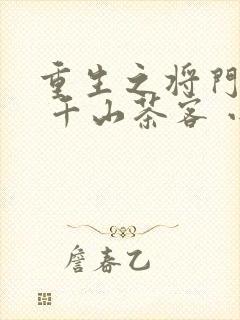 重生之将門
千山茶客
詹春乙